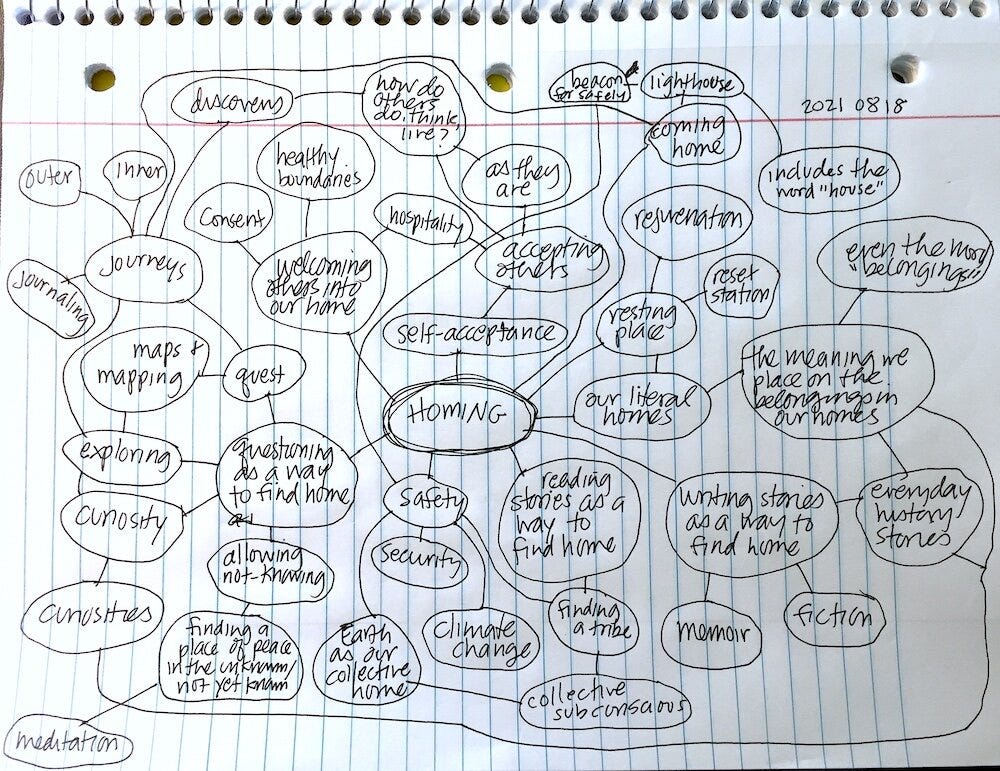 2021 08 18
discovery
how do
others
do, think,
live?
beacon
for safety
lighthouse
coming
home
includes the
word "house"
outer
inner
healthy
boundaries
as they
are
consent
hospitality
rejuvenation
journeys
welcoming
others into
our home
accepting
others
even the word
"belongings"
journaling
reset
station
resting
place
self-acceptance
maps +
mapping
quest
HOMING
our literal
homes
the meaning we
place on the
belongings in
our homes
exploring
questioning
as a way
to find home
safety
reading
stories as a
way to
find home
writing stories
as a way to
find home
everyday
history
stories
curiosity
security
allowing
not-knowing
curiosities
finding a
place of peace
in the unknown/
not yet known
Earth
as our
collective
home
climate
change
finding
a tribe
memoir
fiction
collective
subconscious
meditation